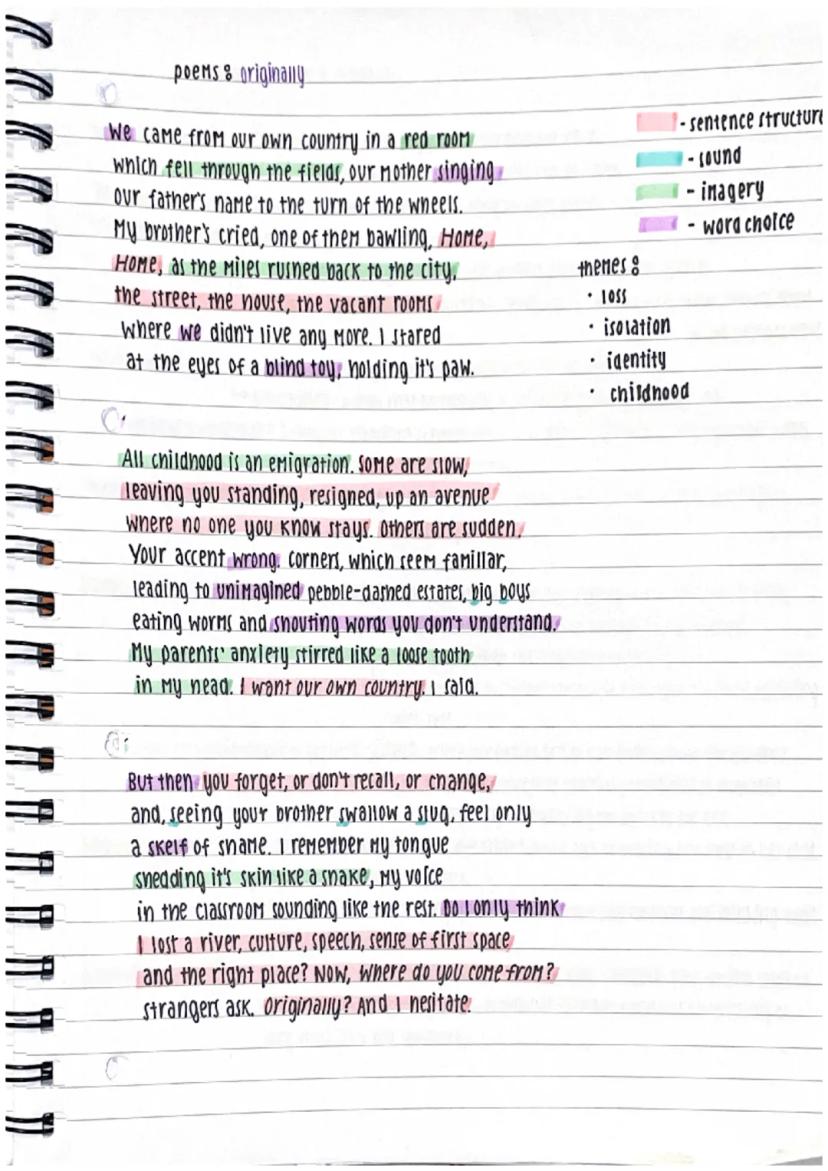 poems : originally
We came from our own country in a red room
which fell through the fields, our mother singing
our father's name to the turn of the wheels.
My brother's cried, one of them bawling, Home,
Home, as the miles rushed back to the city,
the street, the house, the vacant rooms
where we didn't live any more. I stared
at the eyes of a blind toy, holding it's paw.
- sentence structure
- sound
- imagery
- word choice
themes :
· loss
· isolation
· identity
· childhood
All childhood is an emigration. Some are slow,
leaving you standing, resigned, up an avenue
where no one you know stays. Others are sudden.
Your accent wrong. Corners, which seem familiar,
leading to unimagined pebble-dashed estates, big boys
eating worms and shouting words you don't understand.
My parents' anxiety stirred like a loose tooth
in my head. I want our own country. I said.
But then you forget, or don't recall, or change,
and, seeing your brother swallow a slug, feel only
a skelf of shame. I remember my tongue
shedding it's skin like a snake, my voice
in the classroom sounding like the rest. Do I only think
I lost a river, culture, speech, sense of first space
and the right place? Now, Where do you come from?
strangers ask. Originally? And I hesitate.